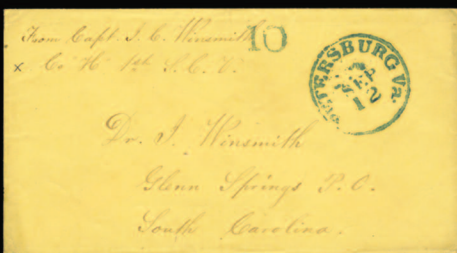 From Capt. J. C. Winsmith
10
x Co H 1st S. C. V.
PETERSBURG Va.
SEP
2
1
Dr. J. Winsmith
Glenn Springs P. O.
South Carolina.